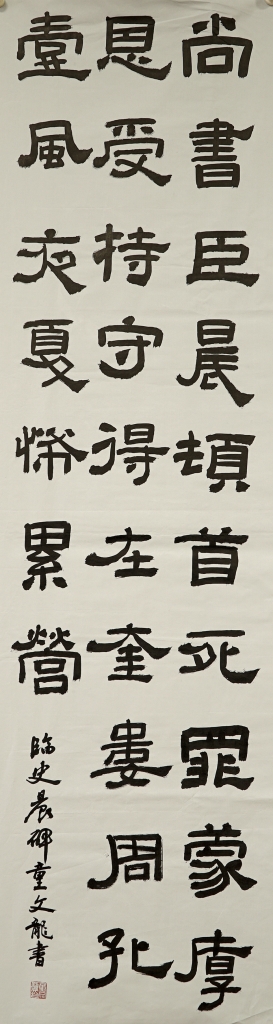 尚書臣晨頓首死罪蒙厚
恩受持守得在奎婁周孔
壹風夜夏怖累營
臨史晨碑童文龍書